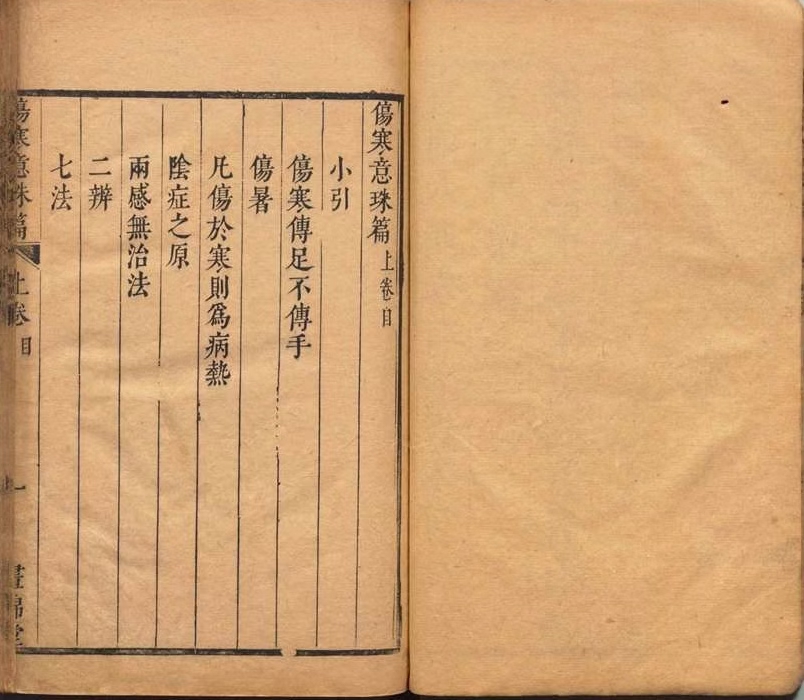 傷寒意珠篇 上卷目
小引
傷寒傳足不傳手
傷暑
凡傷於寒則爲病熱
陰症之原
兩感無治法
二辨
七法
傷寒意珠篇 上卷目 一 晝錦堂